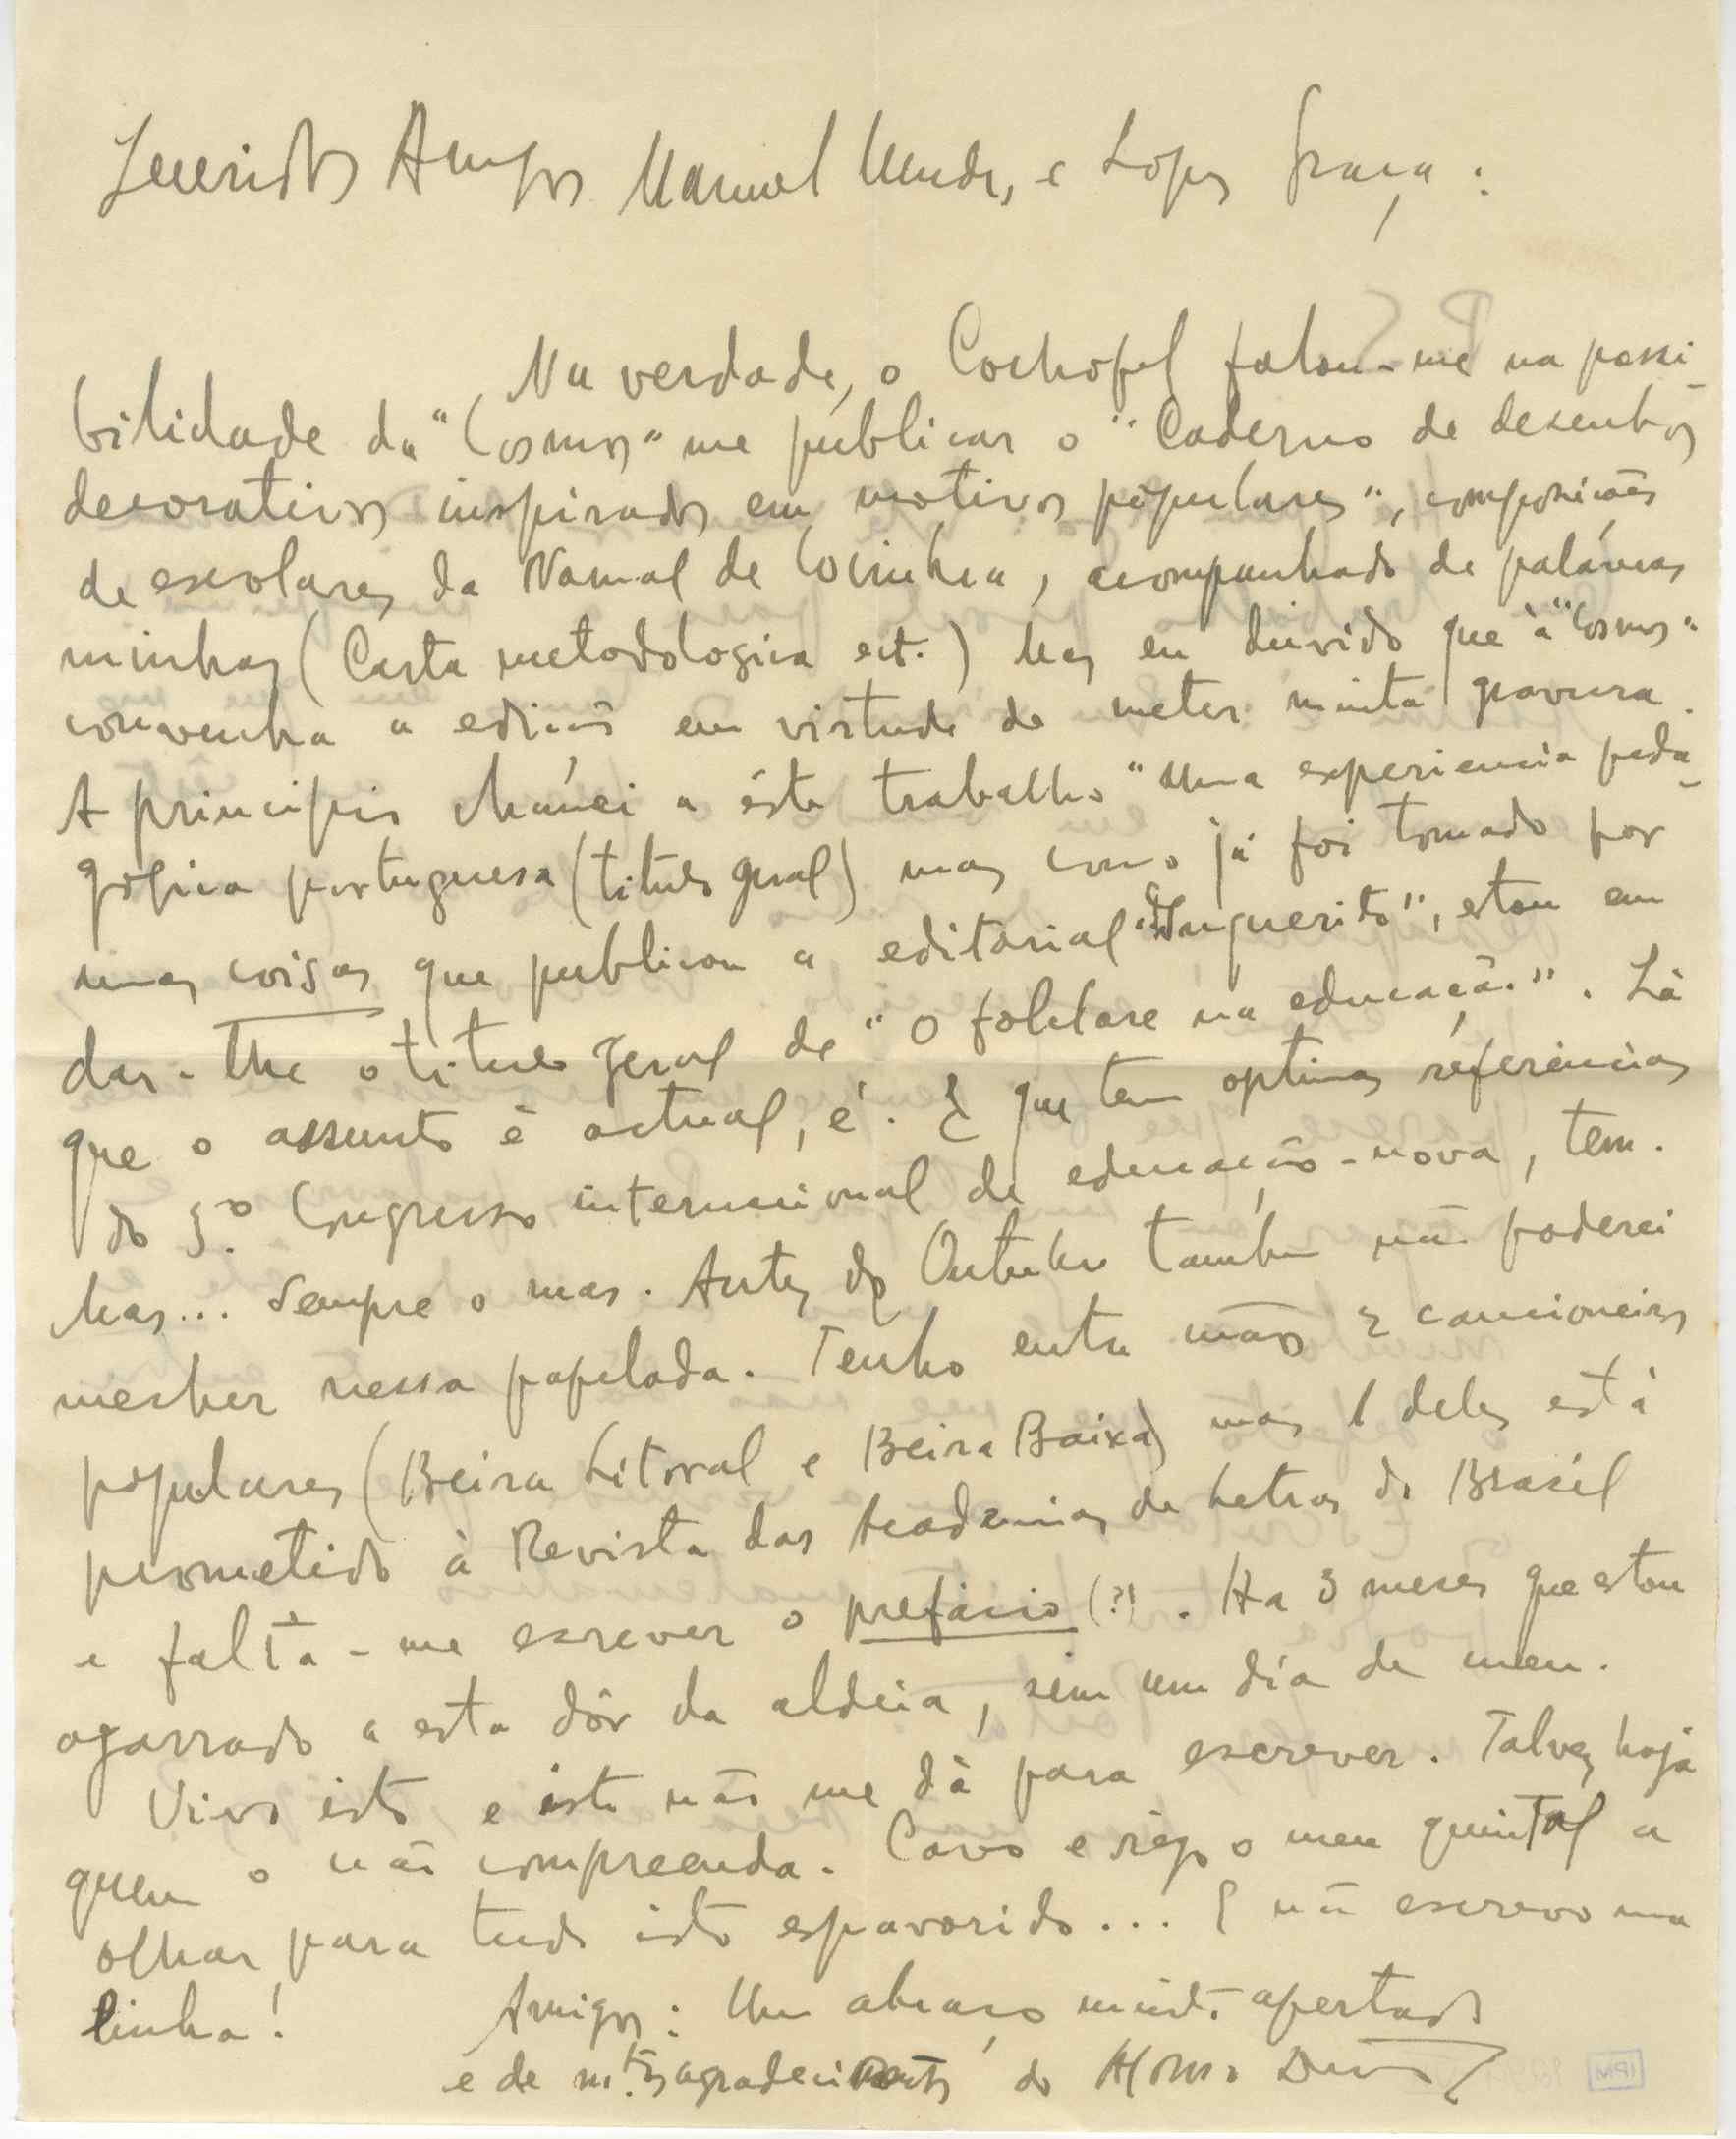 Queridos Amigos Manuel Mendes, e Lopes Graça:
Na verdade, o Cochofel falou-me na possi-
bilidade da "Cosmos" me publicar o "Caderno de desenhos
decorativos inspirados em motivos populares", composicões
de escolares da Normal de Coimbra, acompanhado de palávras
minhas (Carta metodologica ect.) Mas eu duvido que à "Cosmos"
convenha a edição em virtude de meter muita gravura.
A principio chamei a êste trabalho "Uma experiencia peda-
gógica portuguesa (titulo geral) mas como já foi tomado por
umas coisas que publicou a editorial "Inquerito", estou em
dar-lhe o titulo geral de "O folclore na educação". Lá
que o assunto é actual, é. E que tem optimas referências
do 5º Congresso internacional de educação-nova, tem.
Mas... Sempre o mas. Antes de Outubro tambem não poderei
mecher nessa papelada. Tenho entre mãos 2 cancioneiros
populares (Beira Litoral e Beira Baixa) mas 1 deles está
prometido à Revista das Academias de Letras do Brasil
e falta-me escrever o prefácio (?). Ha 3 meses que estou
agarrado a esta dôr da aldeia, sem um dia de meu.
Vivo isto e isto não me dá para escrever. Talvez haja
quem o não compreenda. Cavo e rego o meu quintal a
olhar para tudo isto espavorido... E não escrevo uma
linha!
Amigos: Um abraço muito apertado
e de m.tos agradecimentos do Afonso Duarte